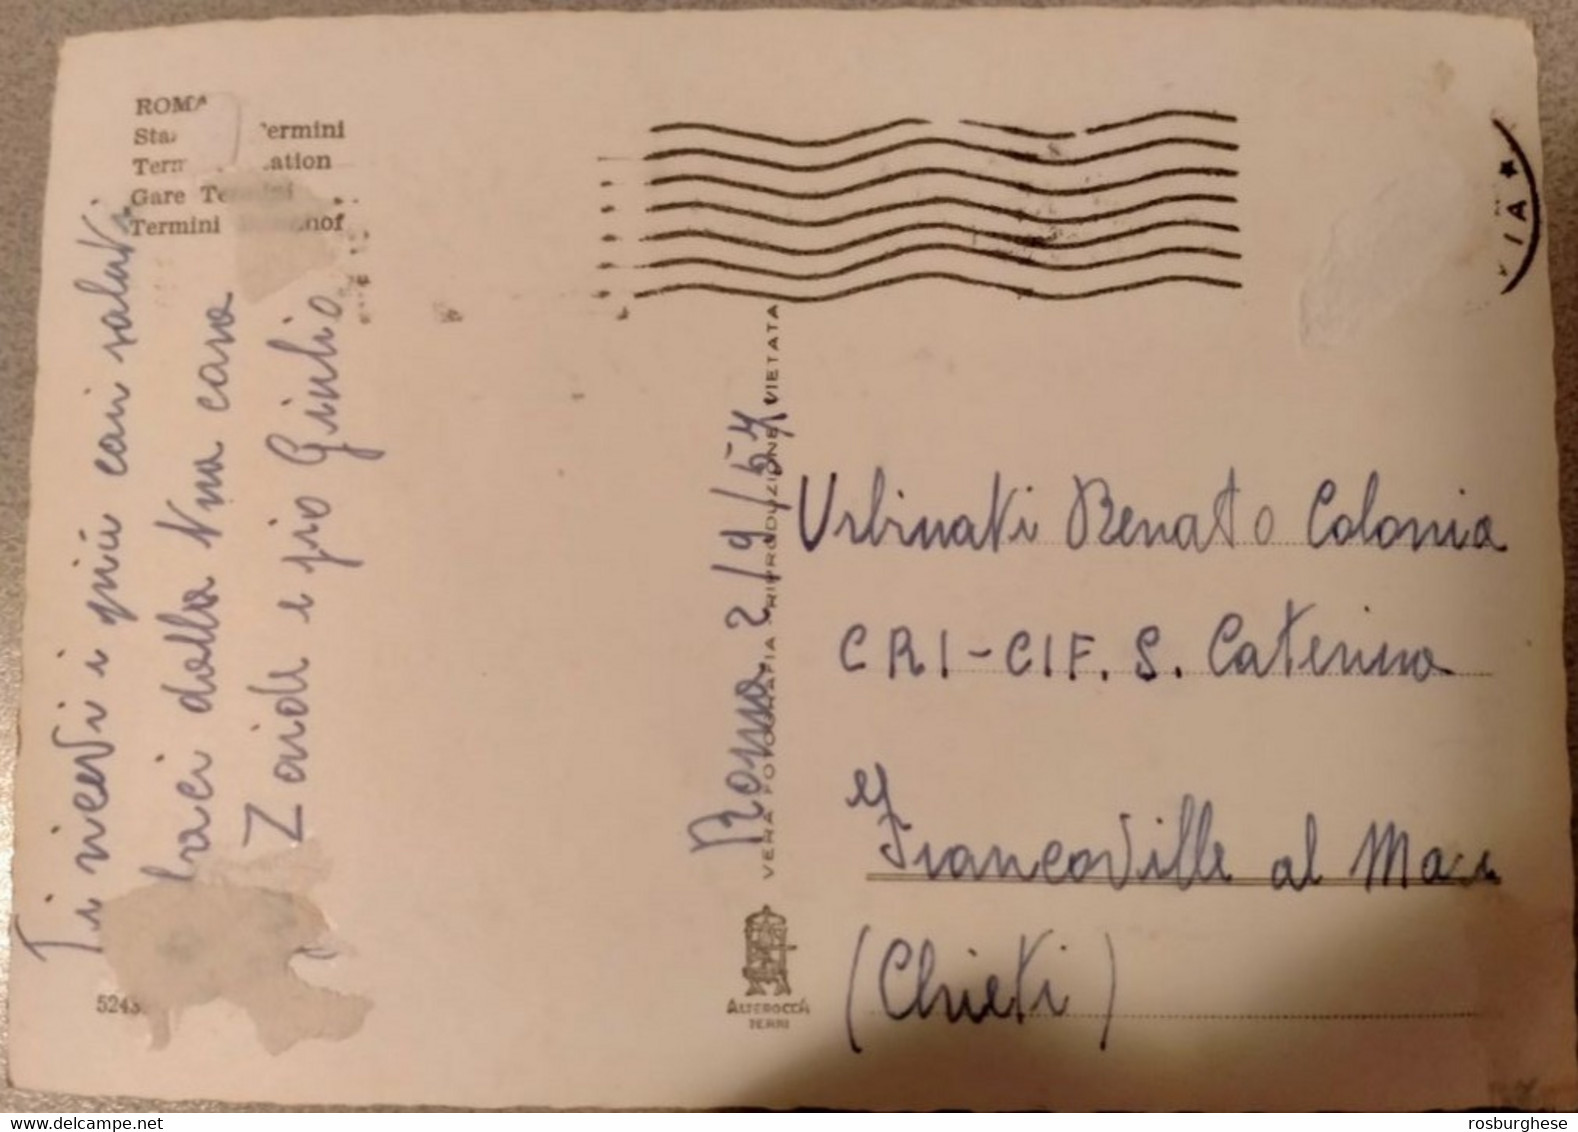 ROMA
Sta Termini
Term ation
Gare Termini
Termini nof
Ti ricevi i più cari saluti
baci dalla tua cara
Zaide e zio Giulio
5243
Roma 2/9/57
VERA FOTOGRAFIA - RIPRODUZIONE VIETATA
ALTEROCCA
TERNI
VIA *
Urbinati Renato Colonia
CRI-CIF. S. Caterina
Francaville al Mare
(Chieti)
delcampe.net
rosburghese